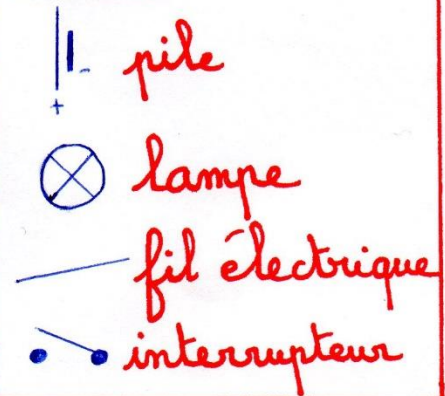 - pile
+
lampe
fil électrique
interrupteur